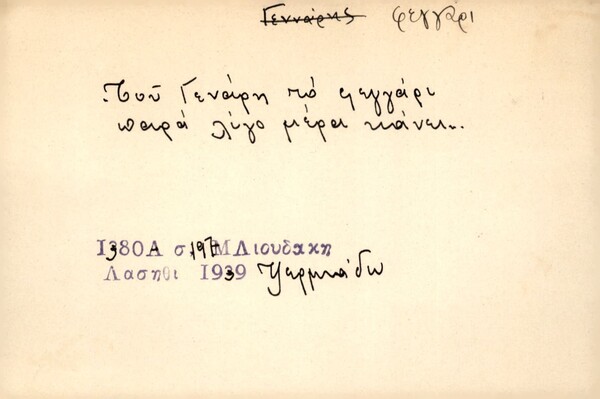 Γεννάρης φεγγάρι
Τοῦ Γενάρη τὸ φεγγάρι
παρά λίγο μέρα κάνει..
1380Α σ. 197 Μ Λιουδακη
Λασηθι 1939 Τζερμιάδω